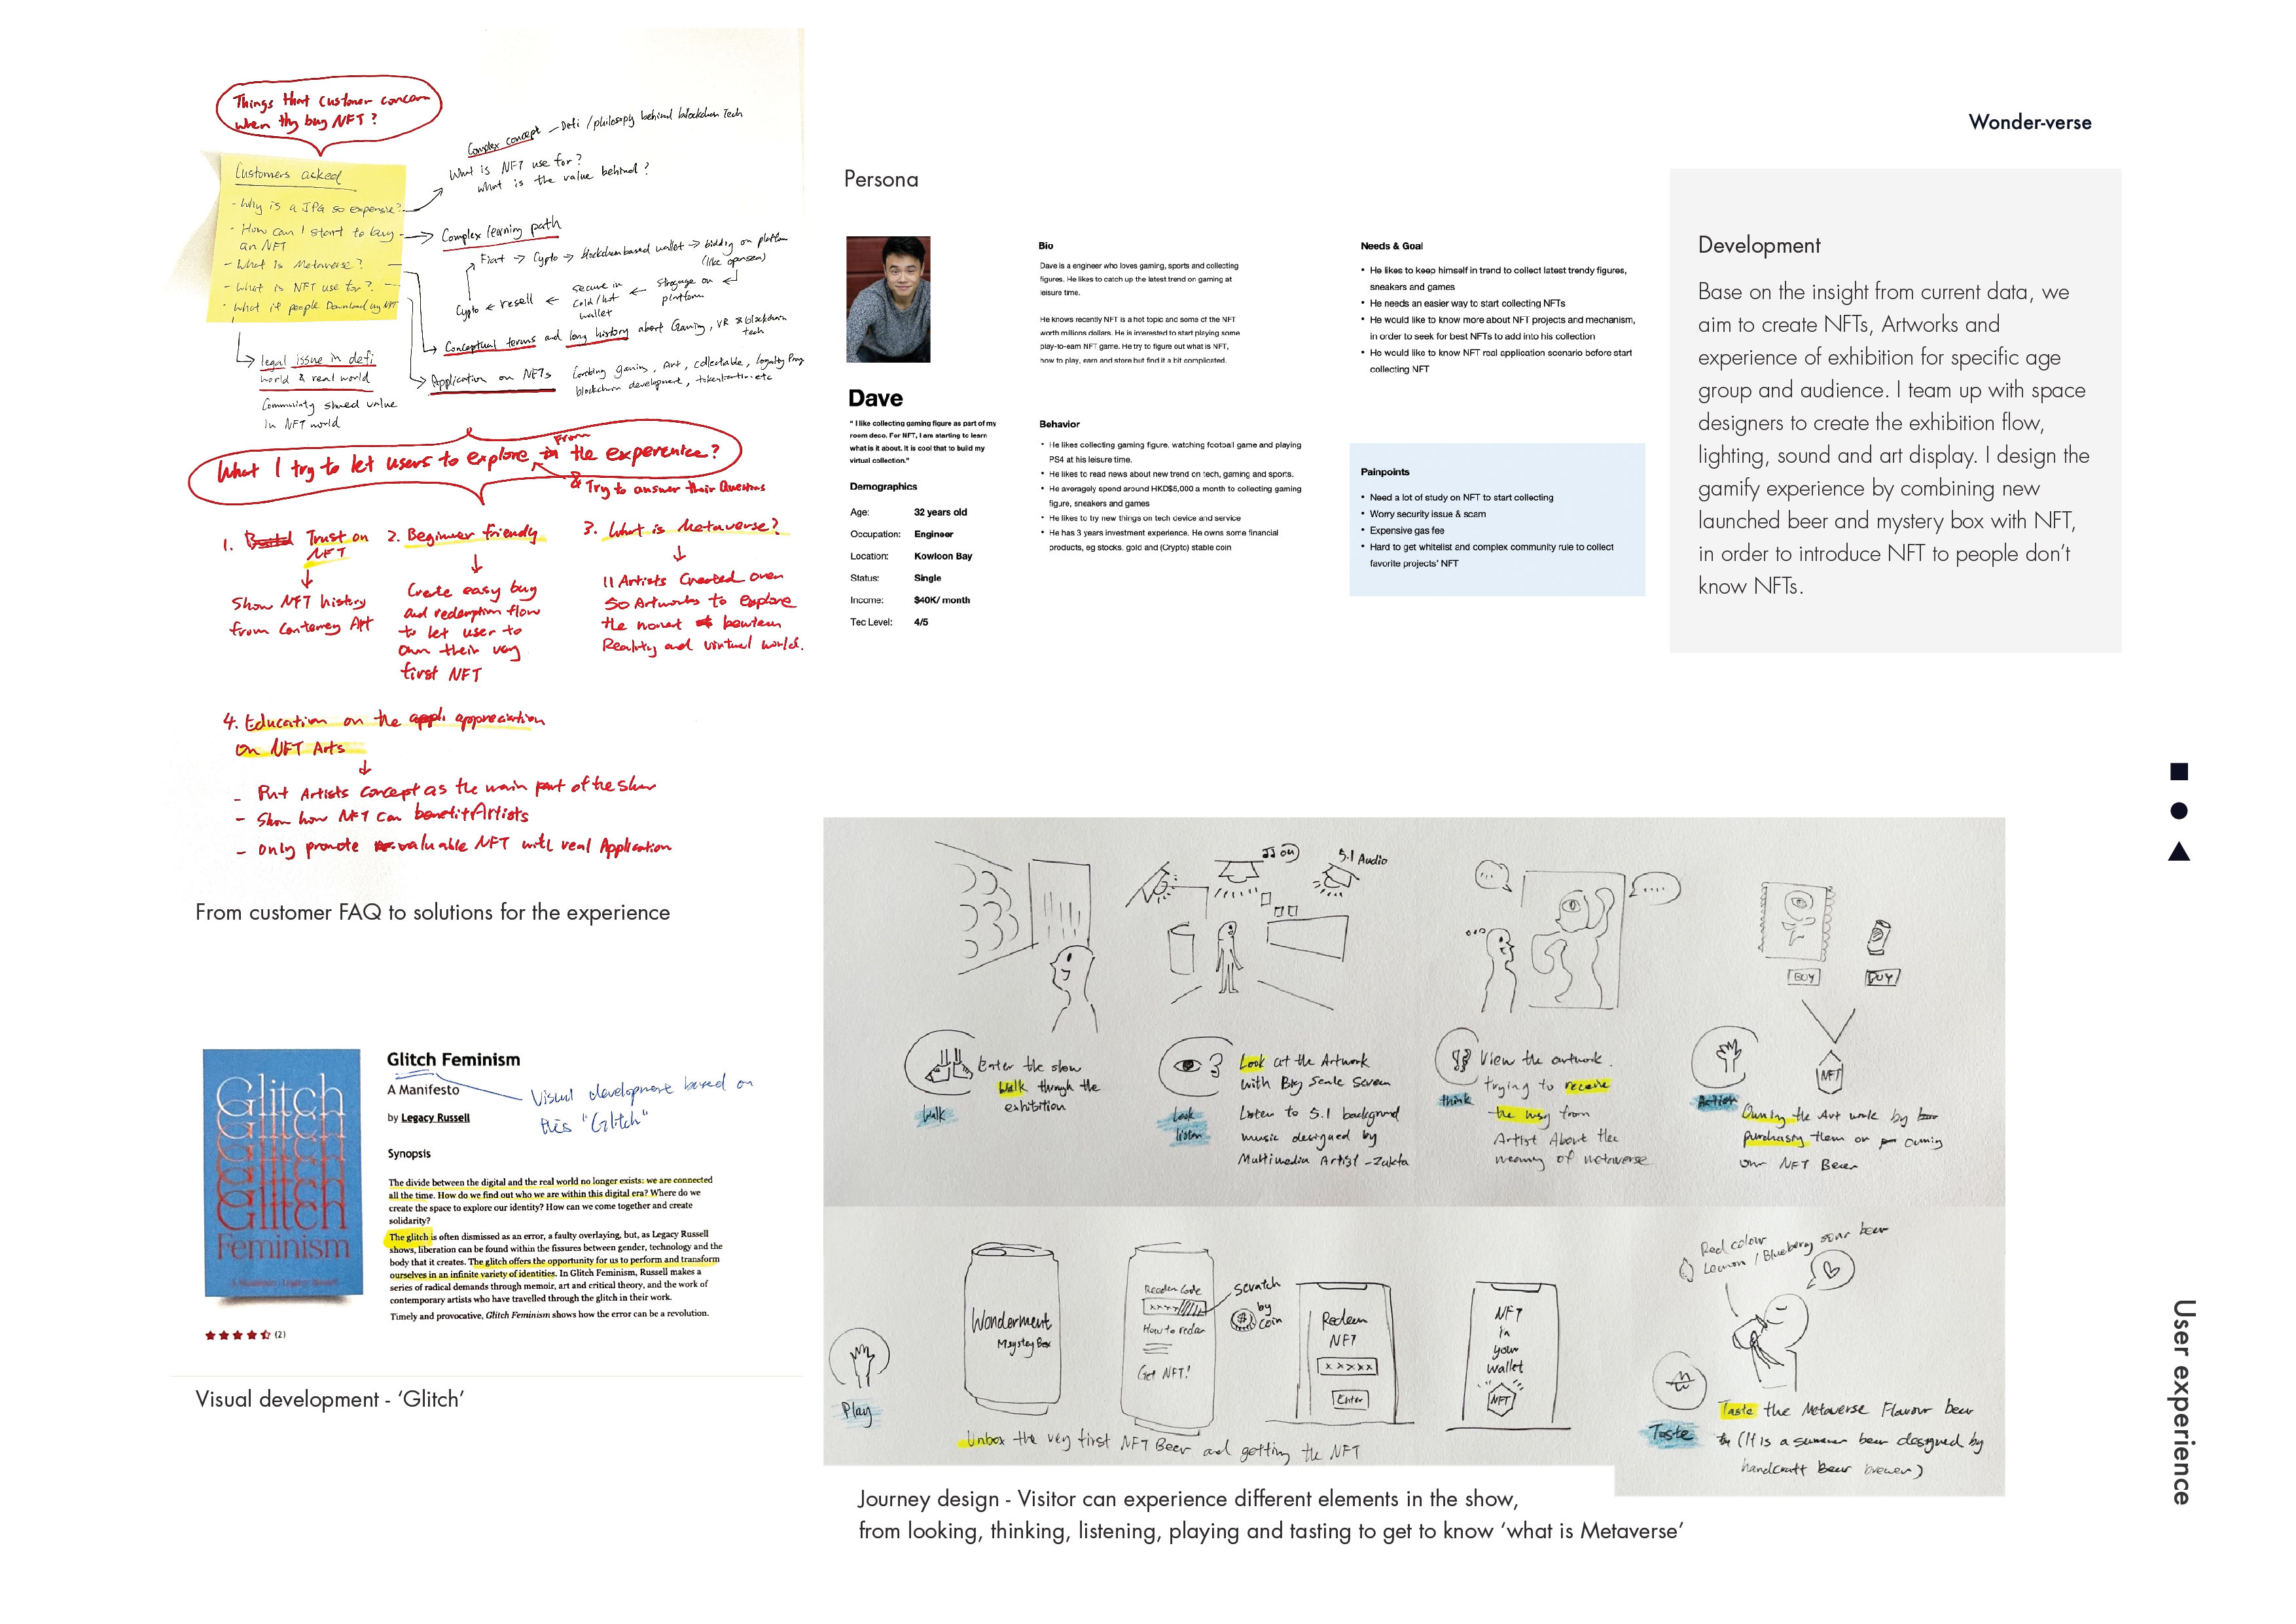 Things that customer concern
when thy buy NFT?
Customers asked
- Why is a JPG so expensive?
- How can I start to buy
an NFT
- What is Metaverse?
- What is NFT use for?
- What if people Download my NFT
Complex concept - Defi / philosophy behind blockchain Tech
What is NFT use for?
what is the value behind?
Complex learning path
Fiat → Cypto → blockchain based wallet → bidding on platform
(like opensea)
Cypto ← resell ← secure in
cold/hot
wallet
← storage on
platform
Conceptual terms and long history about Gaming, VR & blockchain
tech
Application on NFTs
gaming, Art, collectable, loyalty Prog
blockchain development, tokenization etc
legal issue in defi
world & real world
Community shared value
in NFT world
What I try to let users to explore in from the experience?
& Try to answer their Questions
1. Build Trust on
NFT
↓
Show NFT history
from Art
2. Beginner friendly
↓
Create easy buy
and redemption flow
to let user to
own their very
first NFT
3. What is Metaverse?
↓
11 Artists Created over
50 Artworks to explore
the
Reality and virtual world.
4. Education on the appreciation
on NFT Arts
↓
- Put Artists concept as the main part of the show
- Show how NFT can benefit Artists
- only promote valuable NFT with real Application
From customer FAQ to solutions for the experience
Glitch
Feminism
Glitch Feminism
A Manifesto
by Legacy Russell
Visual development based on
this "Glitch"
Synopsis
The divide between the digital and the real world no longer exists: we are connected
all the time. How do we find out who we are within this digital era? Where do we
create the space to explore our identity? How can we come together and create
solidarity?
The glitch is often dismissed as an error, a faulty overlaying, but, as Legacy Russell
shows, liberation can be found within the fissures between gender, technology and the
body that it creates. The glitch offers the opportunity for us to perform and transform
ourselves in an infinite variety of identities. In Glitch Feminism, Russell makes a
series of radical demands through memoir, art and critical theory, and the work of
contemporary artists who have travelled through the glitch in their work.
Timely and provocative, Glitch Feminism shows how the error can be a revolution.
(2)
Visual development - ‘Glitch’
Persona
Dave
“ I like collecting gaming figure as part of my
room deco. For NFT, I am starting to learn
what is it about. It is cool that to build my
virtual collection.”
Demographics
Age: 32 years old
Occupation: Engineer
Location: Kowloon Bay
Status: Single
Income: $40K/ month
Tec Level: 4/5
Bio
Dave is a engineer who loves gaming, sports and collecting
figures. He likes to catch up the latest trend on gaming at
leisure time.
He knows recently NFT is a hot topic and some of the NFT
worth millions dollars. He is interested to start playing some
play-to-earn NFT game. He try to figure out what is NFT,
how to play, earn and store but find it a bit complicated.
Behavior
• He likes collecting gaming figure, watching football game and playing
PS4 at his leisure time.
• He likes to read news about new trend on tech, gaming and sports.
• He averagely spend around HKD$5,000 a month to collecting gaming
figure, sneakers and games
• He likes to try new things on tech device and service
• He has 3 years investment experience. He owns some financial
products, eg stocks, gold and (Crypto) stable coin
Needs & Goal
• He likes to keep himself in trend to collect latest trendy figures,
sneakers and games
• He needs an easier way to start collecting NFTs
• He would like to know more about NFT projects and mechanism,
in order to seek for best NFTs to add into his collection
• He would like to know NFT real application scenario before start
collecting NFT
Painpoints
• Need a lot of study on NFT to start collecting
• Worry security issue & scam
• Expensive gas fee
• Hard to get whitelist and complex community rule to collect
favorite projects’ NFT
Wonder-verse
Development
Base on the insight from current data, we
aim to create NFTs, Artworks and
experience of exhibition for specific age
group and audience. I team up with space
designers to create the exhibition flow,
lighting, sound and art display. I design the
gamify experience by combining new
launched beer and mystery box with NFT,
in order to introduce NFT to people don’t
know NFTs.
5.1 Audio
BUY
BUY
NFT
walk
Enter the show
Walk through the
exhibition
Look
listen
Look at the Artwork
with Big Scale Screen
Listen to 5.1 background
music designed by
Multimedia Artist - Zukta
think
View the artwork.
trying to receive
the msg from
Artist About the
meaning of metaverse
Action
Owning the Art work by
purchasing them or owning
our NFT Beer
Play
Wonderment
Mystey Box
Redeem Code
xxxx
How to redeem
Get NFT!
scratch
by
coin
Redeem
NFT
xxxxx
Enter
NFT
in
your
wallet
NFT
Unbox the very first NFT Beer and getting the NFT
Red colour
Lemon / Blueberry sour beer
Taste
Taste the Metaverse Flavour beer
(It is a summer beer designed by
handcraft Beer brewer)
Journey design - Visitor can experience different elements in the show,
from looking, thinking, listening, playing and tasting to get to know ‘what is Metaverse’
User experience